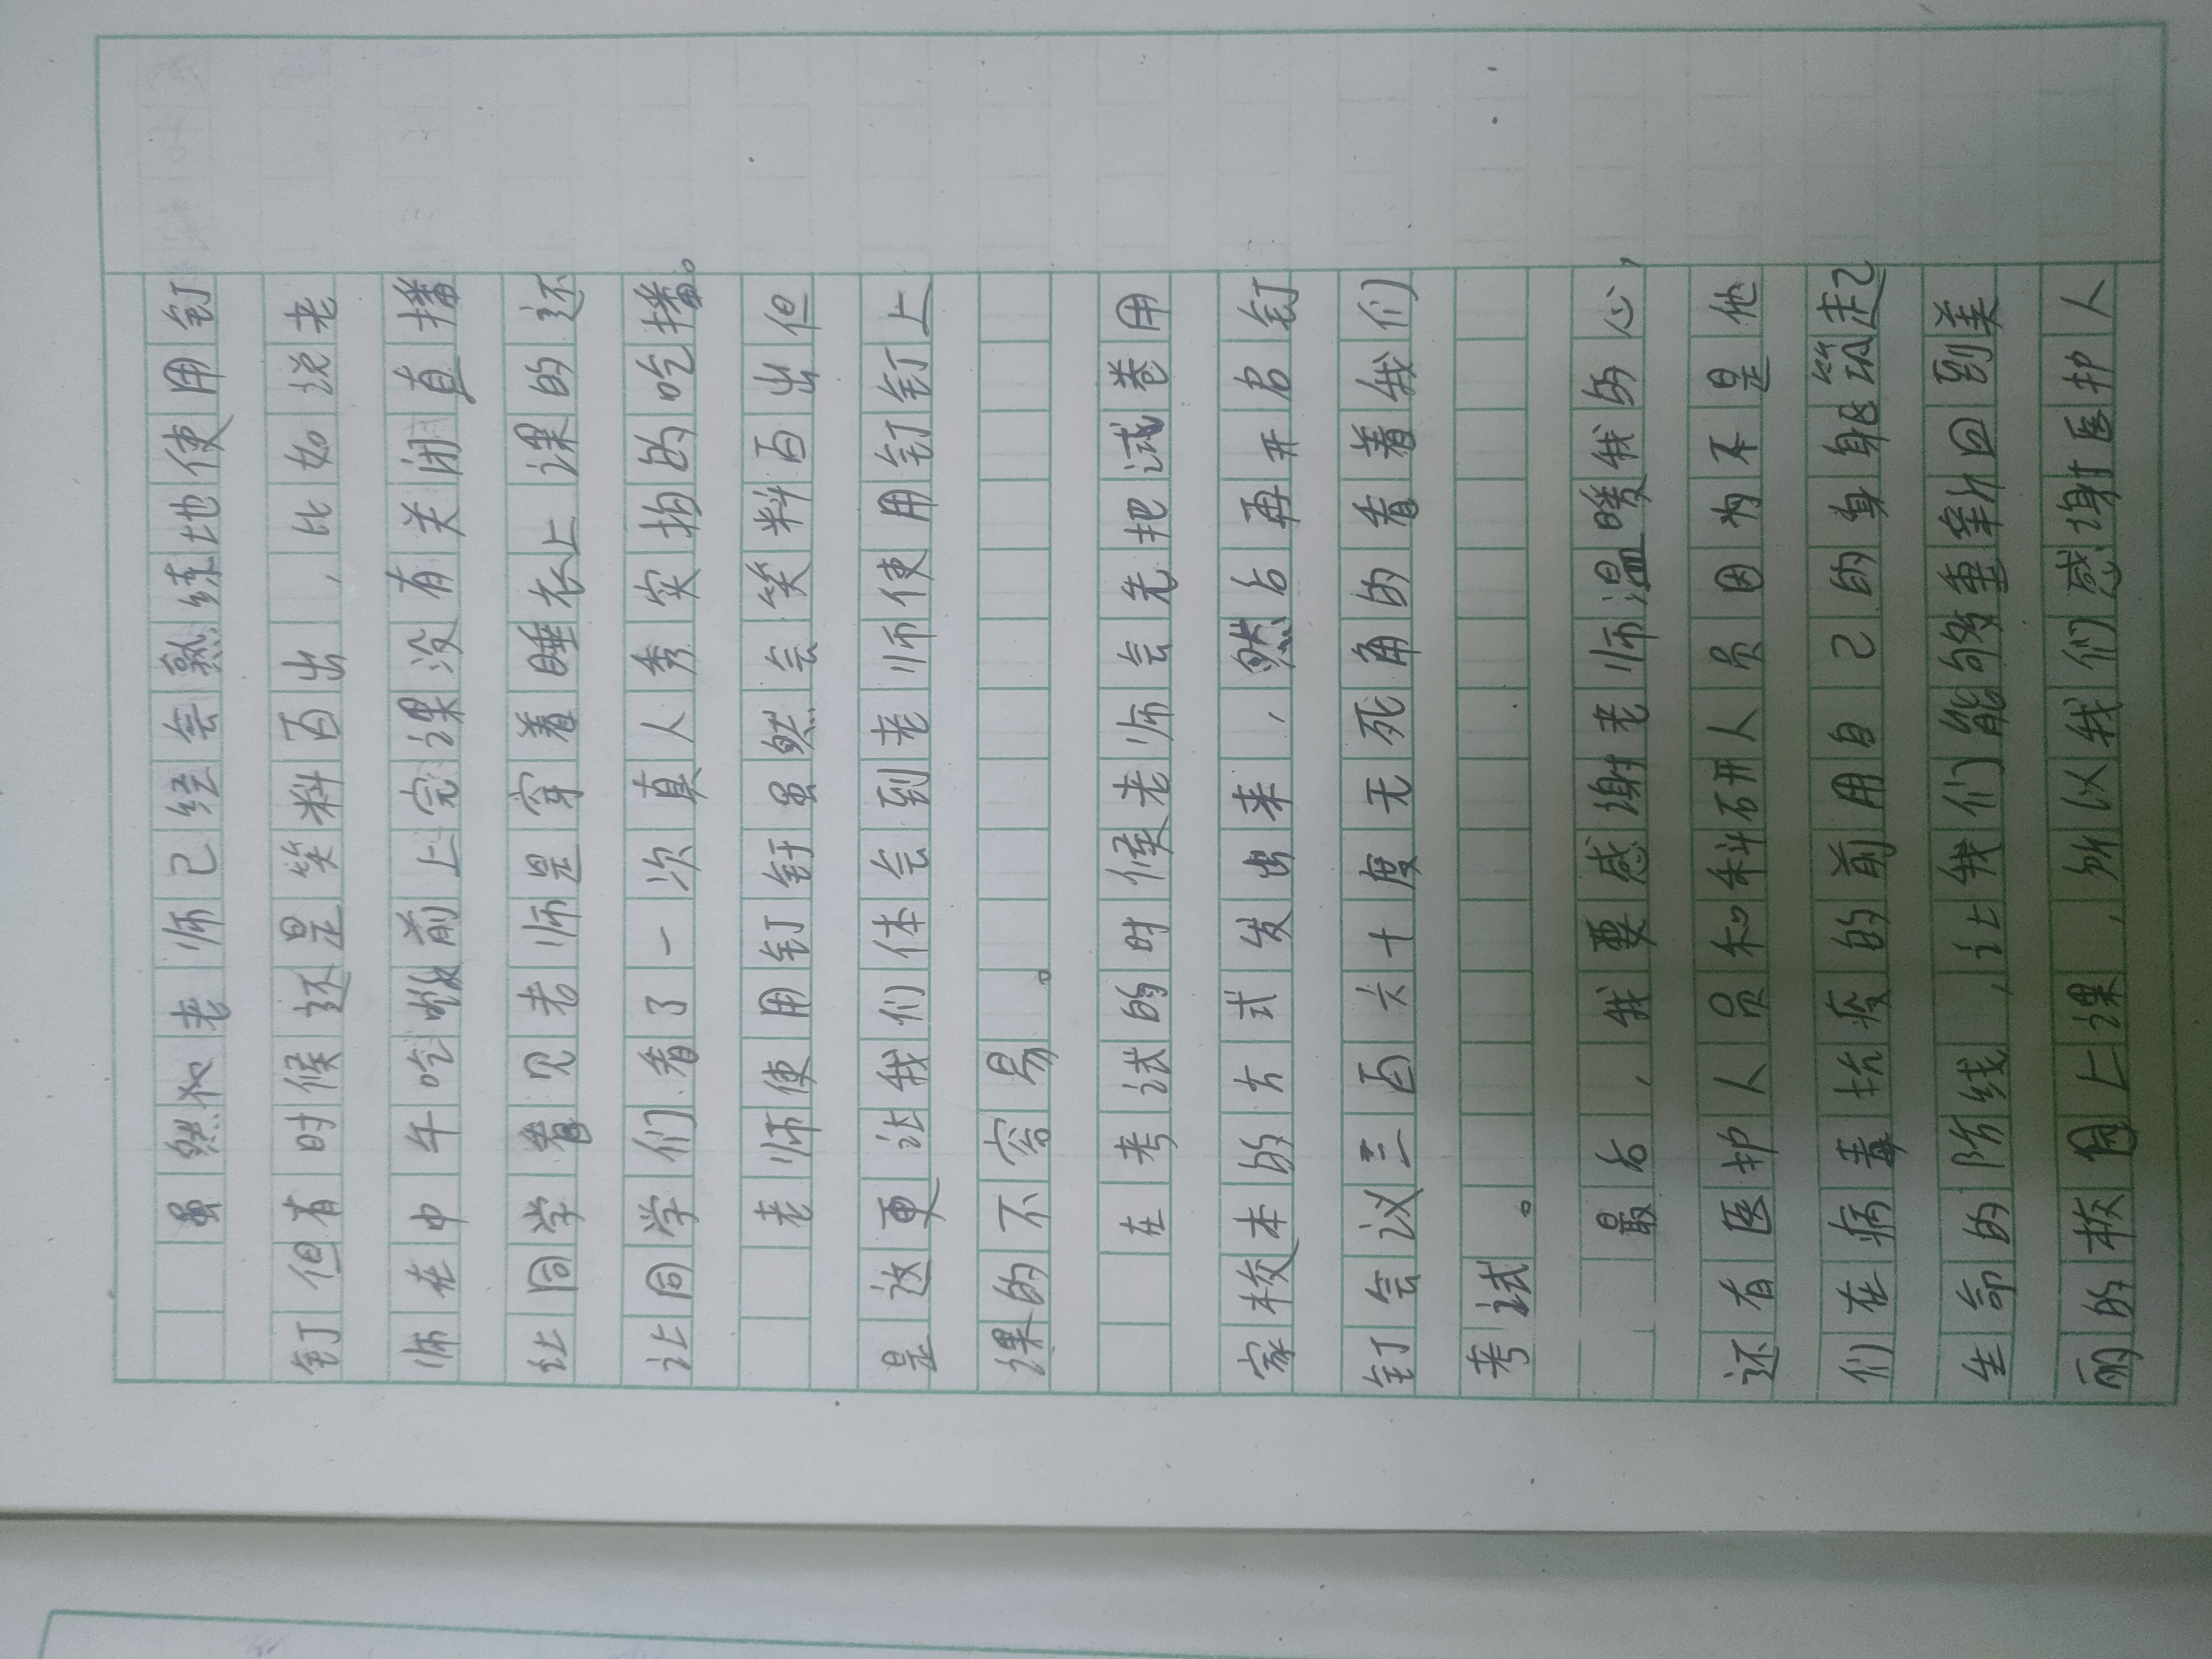 虽然老师已经会熟练地使用钉
钉但有时候还是笑料百出，比如说老
师在中午吃饭前上完课没有关闭直播
让同学看见老师是穿着睡衣上课的还
让同学们看了一次真人秀实拍的吃播。
老师使用钉钉虽然会笑料百出但
是这更让我们体会到老师使用钉钉上
课的不容易。
在考试的时候老师会先把试卷用
家校本的方式发出来，然后再开名钉
钉会议三百六十度无死角的看着我们
考试。
最后，我要感谢老师温暖我的心，
还有医护人员和科研人员因为不是他
们在病毒抗疫的前用自己的身躯筑起
生命的防线，让我们能够重新回到美
丽的校园上课，所以我们感谢医护人